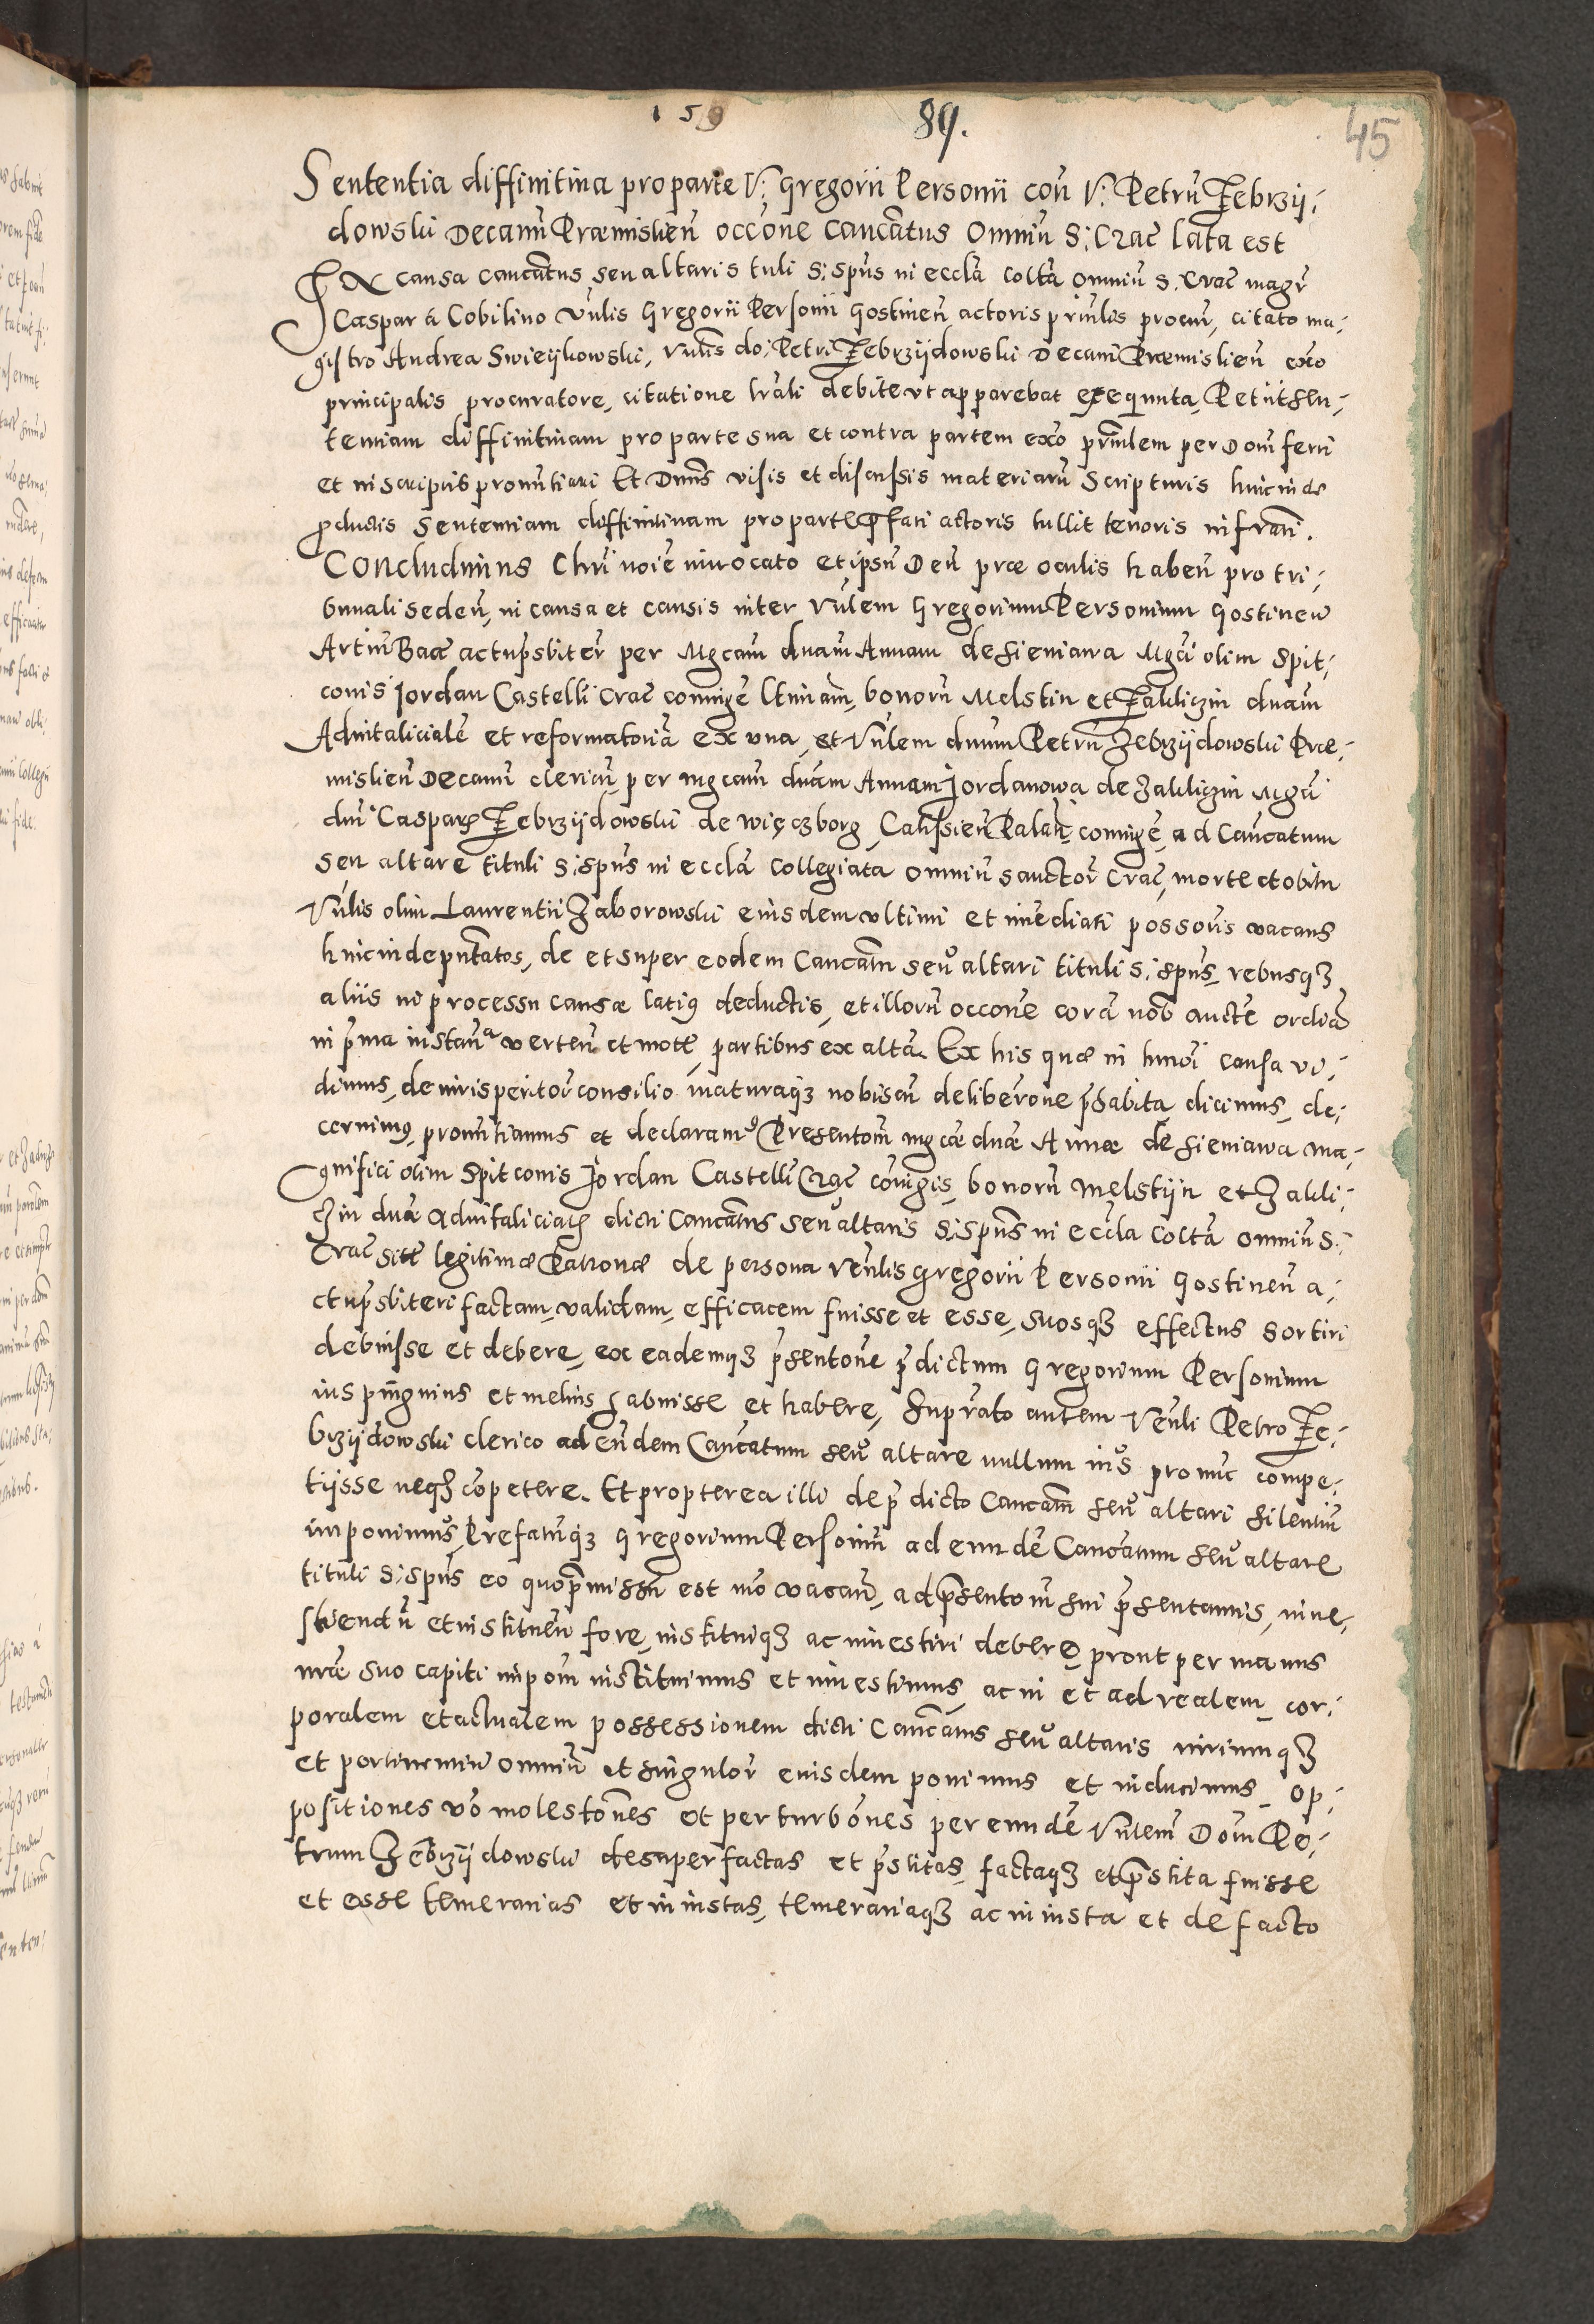 1 5 9
89.
45
Sententia diffinitiua pro parte V: Gregorii Personii con̄ V: Petrū Zebrzij-
dowski Decanū Præmislien̄ occōne Cancātus Omniū S: Crac̄ lata est
In causa cancātus seu altaris tuli S: spūs in ecclā collt̄a omniū s. Crac̄ magr̄
Caspar á Cobilino vn̄lis Gregorii Personii Gostinen̄ actoris prin̄lis procur̄, citato ma-
gistro Andrea Swieijkowski, vnlis̄ do: Petri Zebrzijdowski Decani Præmislien̄ exo
principalis procuratore, citatione lr̄ali debite vt apparebat exequuta, Petiit sen-
tentiam diffinitiuam pro parte sua et contra partem exo prin̄lem per Dom̄ ferri
et in scriptis pronuntiari Et Dnūs visis et discussis materiarū Scripturis hinc inde
productis Sententiam diffinitiuam pro parte prefati actoris tullit tenoris infrāti.
Concludimus Chri noīe inuocato et ipsū Deū præ oculis haben̄ pro tri-
bunali seden̄, in causa et causis inter Vn̄lem Gregorium Personium Gostinen̄
Artiū Bacc̄ actu p̄sbiter̄ per Mgcam̄ dnam̄ Annam de Sieniawa Mgci olim Spit-
conis Jordan Castelli Crac̄ coniugē ltimam̄, bonorū Melstin et Zakliczin dnam̄
Aduitalicialē et reformatoriā ex vna, et Vn̄lem dnūm Petrū Zebrzijdowski Præ-
mislien̄ Decanū clericū, per mgcam̄ dnām Annam Jordanowa de Zakliczin Mgci
dni Caspari Zebrzijdowski de Więczborg, Calissien̄ Palat̄, coniugē, ad Cancatum
seu altare tituli S: spūs in ecclā collegiata omniū sanctor̄ Crac̄, morte et obitu
Vn̄lis olim Laurentii Zaborowski eiusdem vltimi et im̄ediati possoris̄ vacans
hinc inde pn̄tatos, de et super eodem Cancatu seu altari tituli S: spūs, rebusq3
aliis in processu causæ latiꝰ deductis, et illorū occone corā nob̄ aucte ordia
in p̄ma instan̄a verten̄ et mott̄, partibus ex altā. Ex his quæ in hmōi causa vi-
dimus, de iurisperitor̄ consilio maturaq3 nobiscū deliberone p̄habita dicimus, de-
cernimꝰ, pronūtiamus et declaramꝰ Presentom̄ mgcæ dnæ Annæ de Sieniawa ma-
gnifici olim Spitconis Jordan Castelli Crac̄ con̄igis, bonorū Melstijn et Zakli-
czin dnæ aduitalicialis dicti Cancatus seu altaris S: spūs in eccla collt̄a omniū S:
Crac̄ sitt̄ legitimæ Patronæ de persona Ven̄lis Gregorii Personii Gostinen̄ a-
ctu p̄sbiteri factam, validam, efficacem fuisse et esse, suosq3 effectus sortiri
debuisse et debere, ex eademq3 p̄sentone p̄dictum Gregorium Personium
ius pinguius et melius habuisse et habere, Suprato autem Venli Petro Ze-
brzijdowski clerico ad eūdem Cancatum seu altare nullum iuꝰ pro nuc̄ compe-
tijsse neq3 cōpetere. Et propterea illi de p̄dicto Cancatu seu altari silentiū
imponimus, Prefatūq3 Gregorium Personiū ad eundē Cancatum seu altare
tituli S: spūs eo quo p̄missū est mō vacan̄, ad p̄sentom̄ sui p̄sentantis, inue-
stiendū et instituen̄ fore, instituiq3 ac inuestiri debere, prout per manus
nræ suo capiti impom̄ instituimus et inuestimus, ac in et ad realem, cor-
poralem et actualem possessionem dicti Cancatus seu altaris iuriumq3
et pertinentiū omniū et singulor̄ eiusdem ponimus et inducimus, op-
positiones vō molestones̄ et perturbones̄ per eundē Vnlem̄ Dom̄ Pe-
trum Zebrzijdowski desuper factas et p̄stitas, factaq3 et p̄stita fuisse
et esse temerarias et iniustas, temerariaq3 ac iniusta et de facto